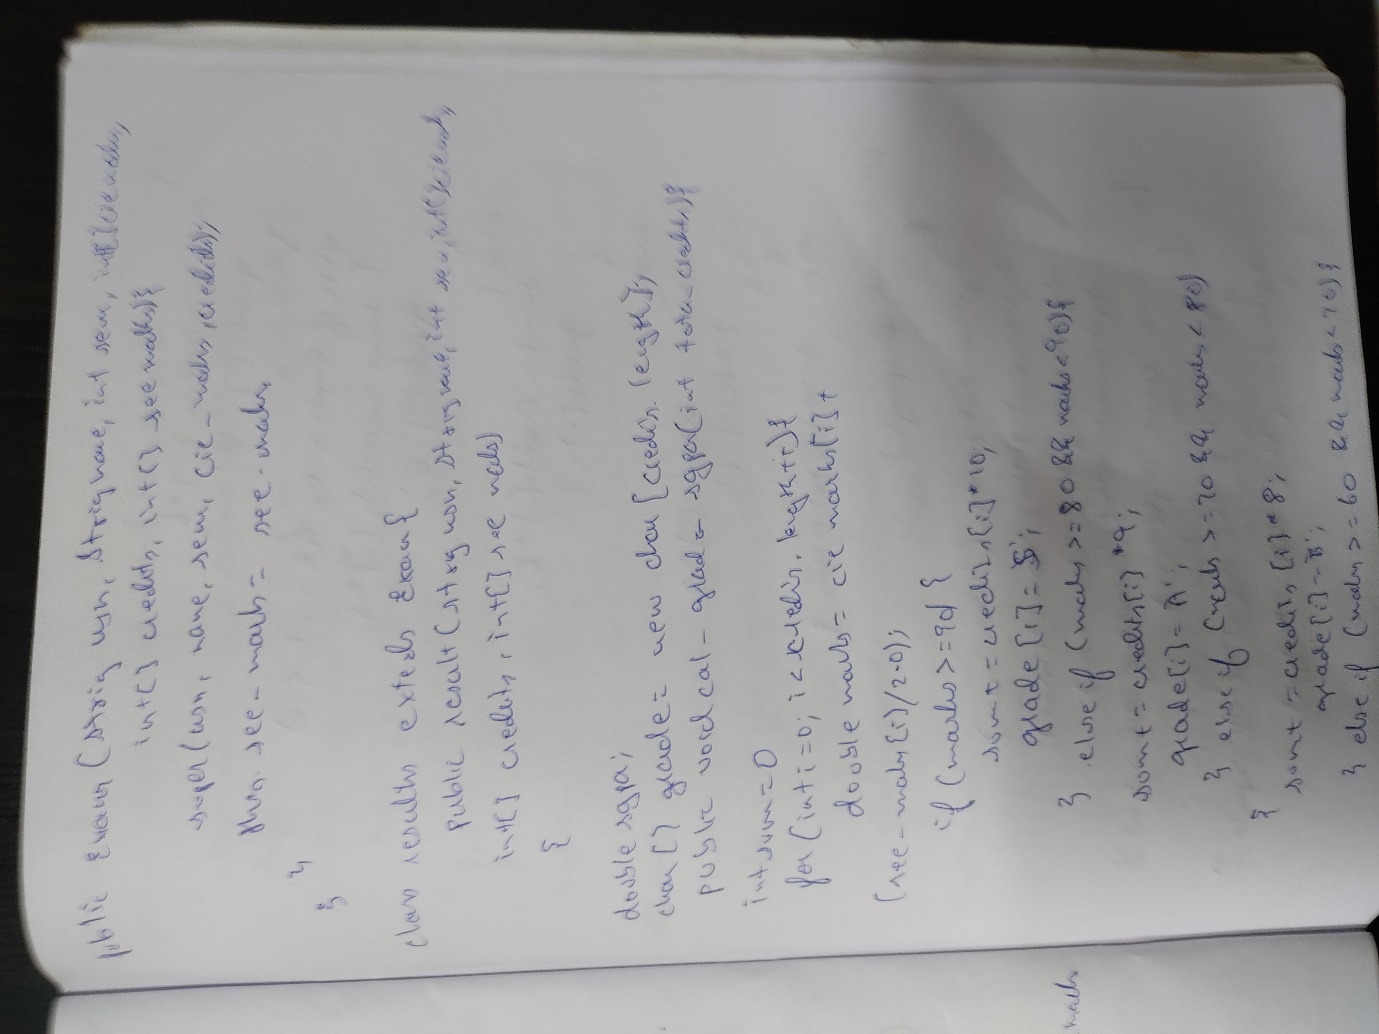 public Exam (String usn, String name, int sem, int[] cie marks,
int[] credits, int[] see marks){
super(usn, name, sem, cie_marks, credits);
this. see-marks = see-marks,
}
}
class results extends Exam {
public result (string usn, string name, int sem, int[] cie marks,
int[] credits, int[] see marks)
{
double sgpa;
char [] grade = new char [credits. length];
public void cal - grade - sgpa(int total-credits){
int sum = 0
for (int i=0; i<credits. length++){
double marks = cie marks[i] +
(see-marks[i]/2.0);
if (marks >=90) {
sum + = credits[i]*10;
grade [i] = 'S';
} else if (marks >= 80 && marks<90){
sum + = credits[i] *9;
grade[i] = 'A';
} else if (marks >=70 && marks < 80)
{
sum + = credits [i]*8;
grade[i] = 'B';
} else if (marks >= 60 && marks<70){
marks